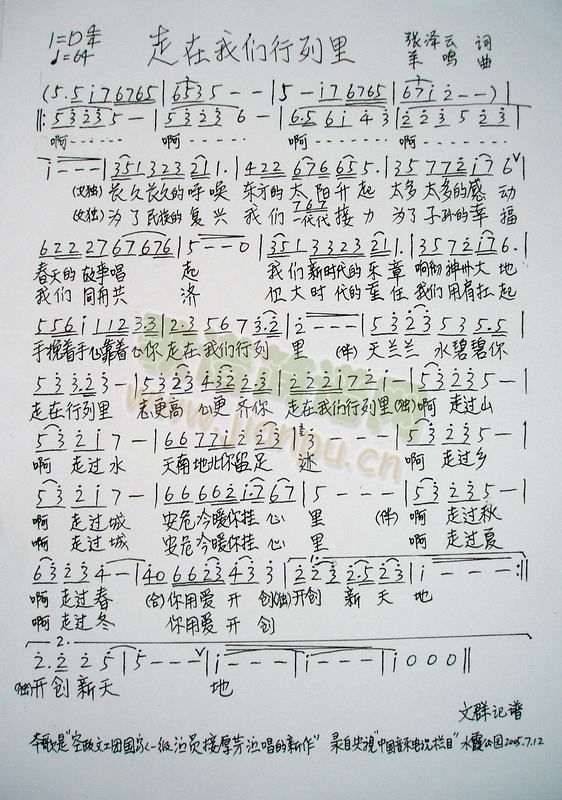 1=D 4/4
♩=64
走在我们行列里
张泽云 词
羊鸣 曲
(5·5i76765|6535--|5-i76765|67i2--)|
‖:53235-|53236-|6·56i43|2235523|
啊------ 啊------ 啊------ 啊------
i---|351323211·|422676655·|35772i76|
(女独)长久长久的呼唤 东方的太阳升起 太多太多的感动
(女独)为了民族的复兴 我们一代代接力 为了子孙的幸福
62227 67676|5--0|3513323211·|3572i76·|
春天的故事唱 起 我们新时代的乐章 响彻神州大地
我们同舟共 济 但大时代的重任 我们用肩扛起
556i1123·3|2·35673·2|2---|5323535·5|
手挽着手心靠着心你走在我们行列 里 (伴)天兰兰 水碧碧你
5333·23-|532343222·3|222i72i-|53235-|
走在行列里 志更高 心更齐你 走在我们行列里(独)啊 走过山
532i7-|6677i223|3---|53235-|
啊 走过水 天南地北你留足 迹 啊 走过乡
532i7-|66662i767|5---|53235-|
啊 走过城 安危冷暖你挂心 里 (伴)啊 走过秋
啊 走过城 安危冷暖你挂心 里 啊 走过夏
63234-|40662343 3|2232·523|i---:‖
啊 走过春 (合)你用爱开创(独)开创 新天 地
啊 走过冬 你用爱开创
2.
2·225|5---|i---|i---|i000‖
(独)开创新天 地
文群记谱
本歌是"空政文工团国家一级演员接厚芳演唱的新作" 录自央视"中国音乐电视栏目" 水霞公园2005.7.12
简谱
www.jianpu.cn